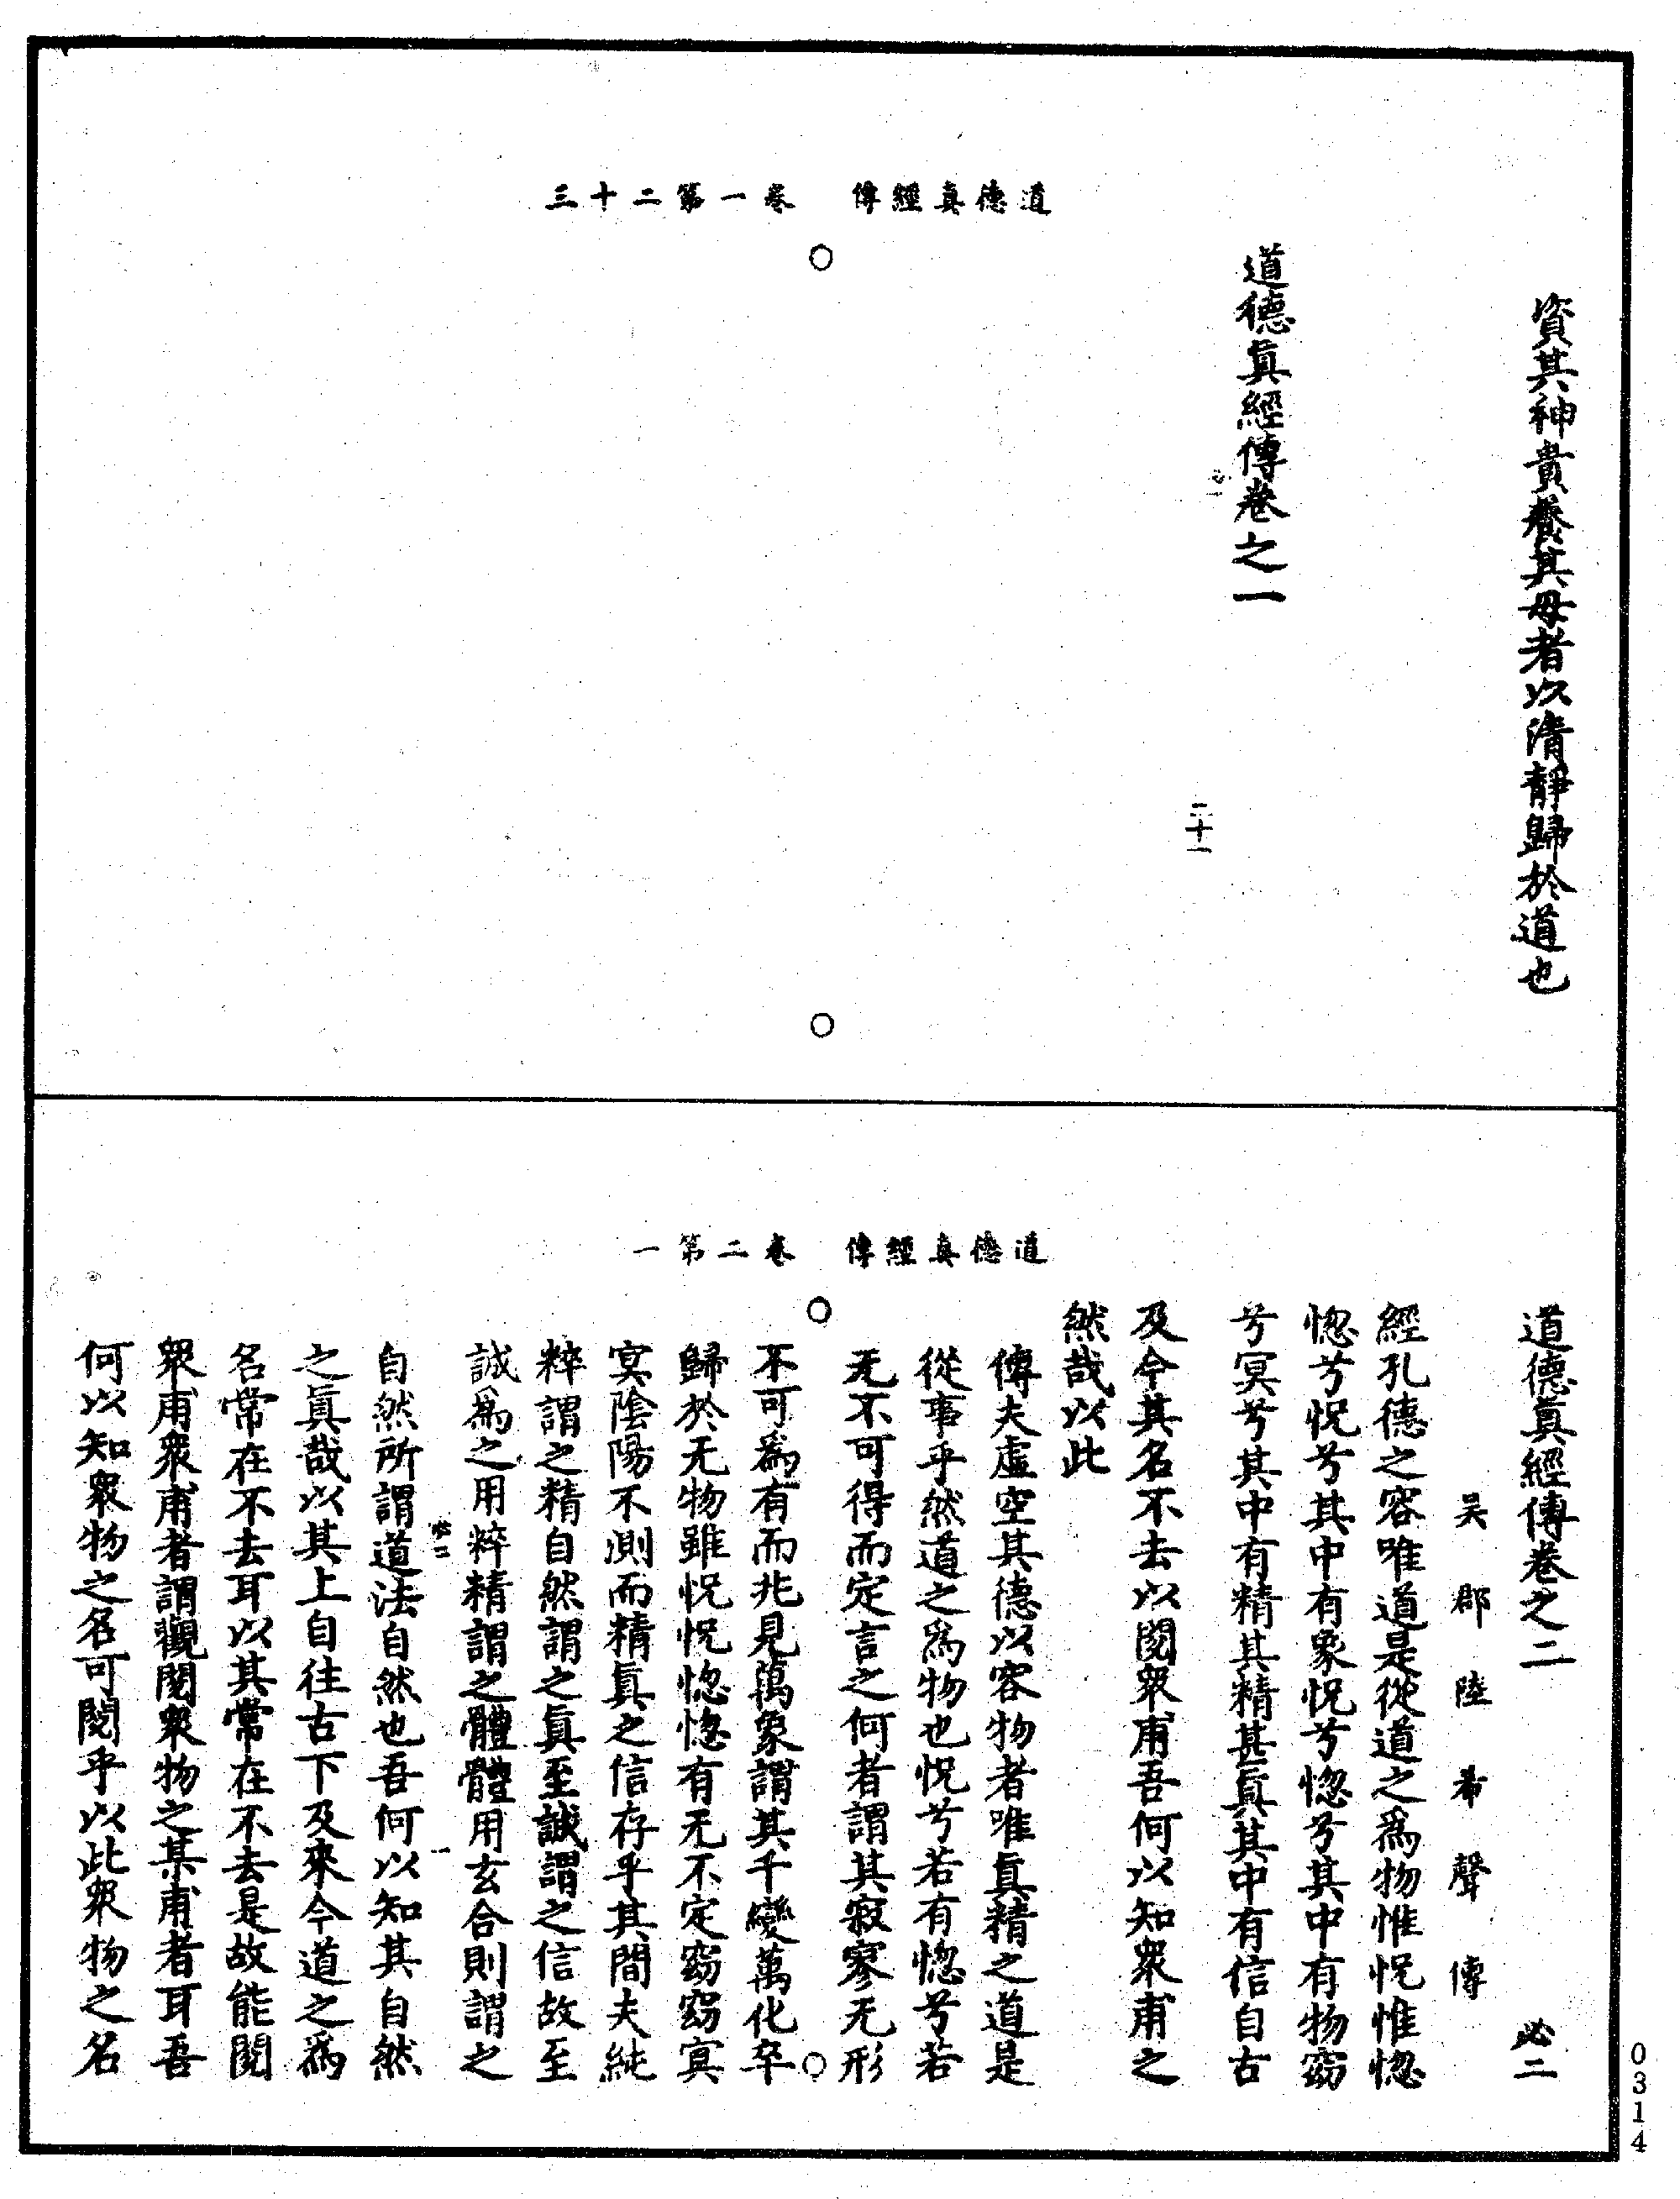 道德真經傳　卷一第二十三
資其神貴養其母者以清靜歸於道也
道德眞經傳卷之一
必一
二十一
道德真經傳　卷二第一
道德眞經傳卷之二　必二
吳郡陸希聲傳
經孔德之容唯道是從道之爲物惟怳惟惚
惚兮怳兮其中有象怳兮惚兮其中有物窈
兮冥兮其中有精其精甚眞其中有信自古
及今其名不去以閱衆甫吾何以知衆甫之
然哉以此
傳夫虛空其德以容物者唯眞精之道是
從事乎然道之爲物也怳兮若有惚兮若
无不可得而定言之何者謂其寂寥无形
不可爲有而兆見萬象謂其千變萬化卒
歸於无物雖怳怳惚惚有无不定窈窈冥
冥陰陽不測而精眞之信存乎其間夫純
粹謂之精自然謂之眞至誠謂之信故至
誠爲之用粹精謂之體體用玄合則謂之
必二
一
自然所謂道法自然也吾何以知其自然
之眞哉以其上自往古下及來今道之爲
名常在不去耳以其常在不去是故能閱
衆甫衆甫者謂觀閱衆物之某甫者耳吾
何以知衆物之名可閱乎以此衆物之名
0314